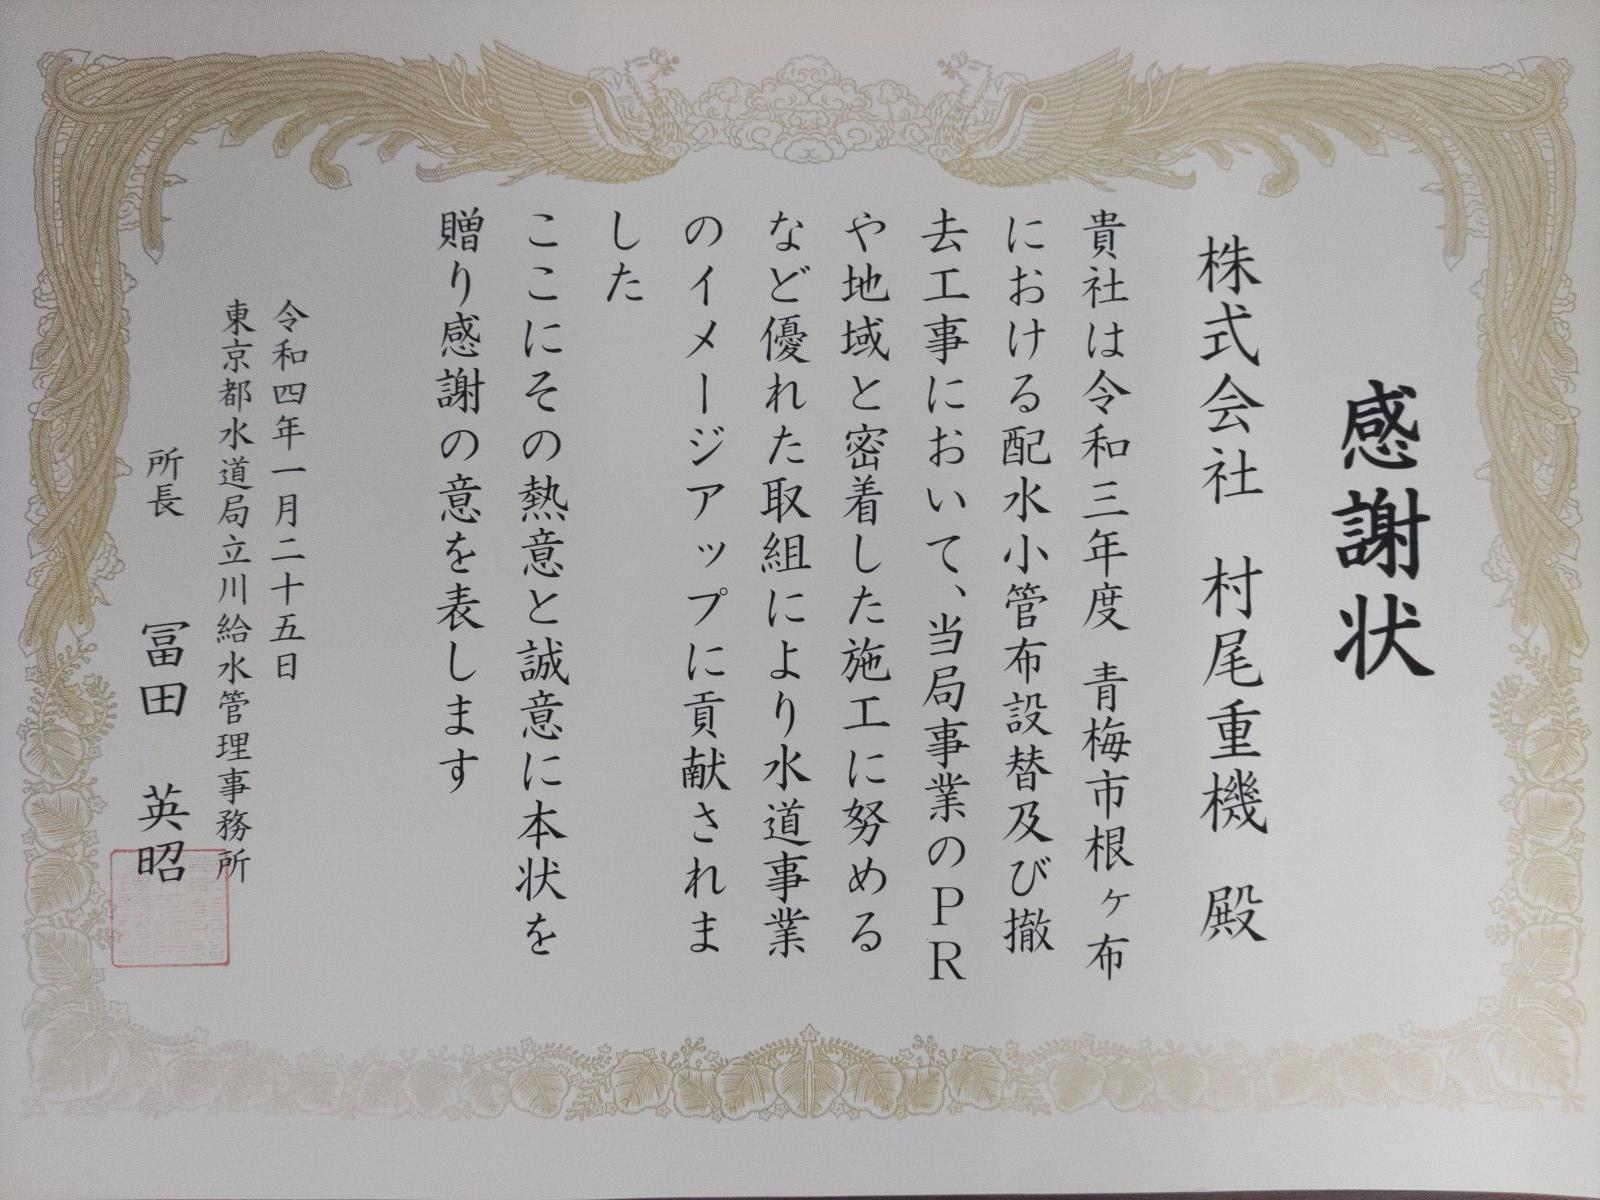 感謝状
株式会社 村尾重機 殿
貴社は令和三年度 青梅市根ヶ布
における配水小管布設替及び撤
去工事において、当局事業のPR
や地域と密着した施工に努める
など優れた取組により水道事業
のイメージアップに貢献されま
した
ここにその熱意と誠意に本状を
贈り感謝の意を表します
令和四年一月二十五日
東京都水道局立川給水管理事務所
所長 冨田 英昭